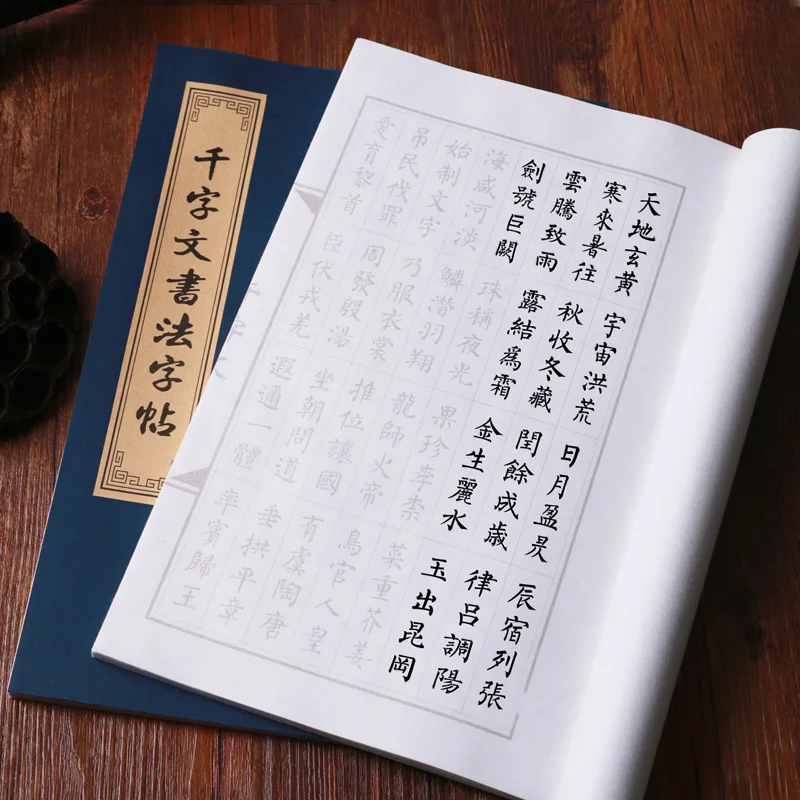 千字文書法字帖
天地玄黃 宇宙洪荒 日月盈昃 辰宿列張
寒來暑往 秋收冬藏 閏餘成歲 律吕調陽
雲騰致雨 露結爲霜 金生麗水 玉出昆岡
劍號巨闕 珠稱夜光 果珍李柰 菜重芥姜
海咸河淡 鱗潛羽翔 龍師火帝 鳥官人皇
始制文字 乃服衣裳 推位讓國 有虞陶唐
吊民伐罪 周發殷湯 坐朝問道 垂拱平章
愛育黎首 臣伏戎羌 遐邇一體 率賓歸王
千字文